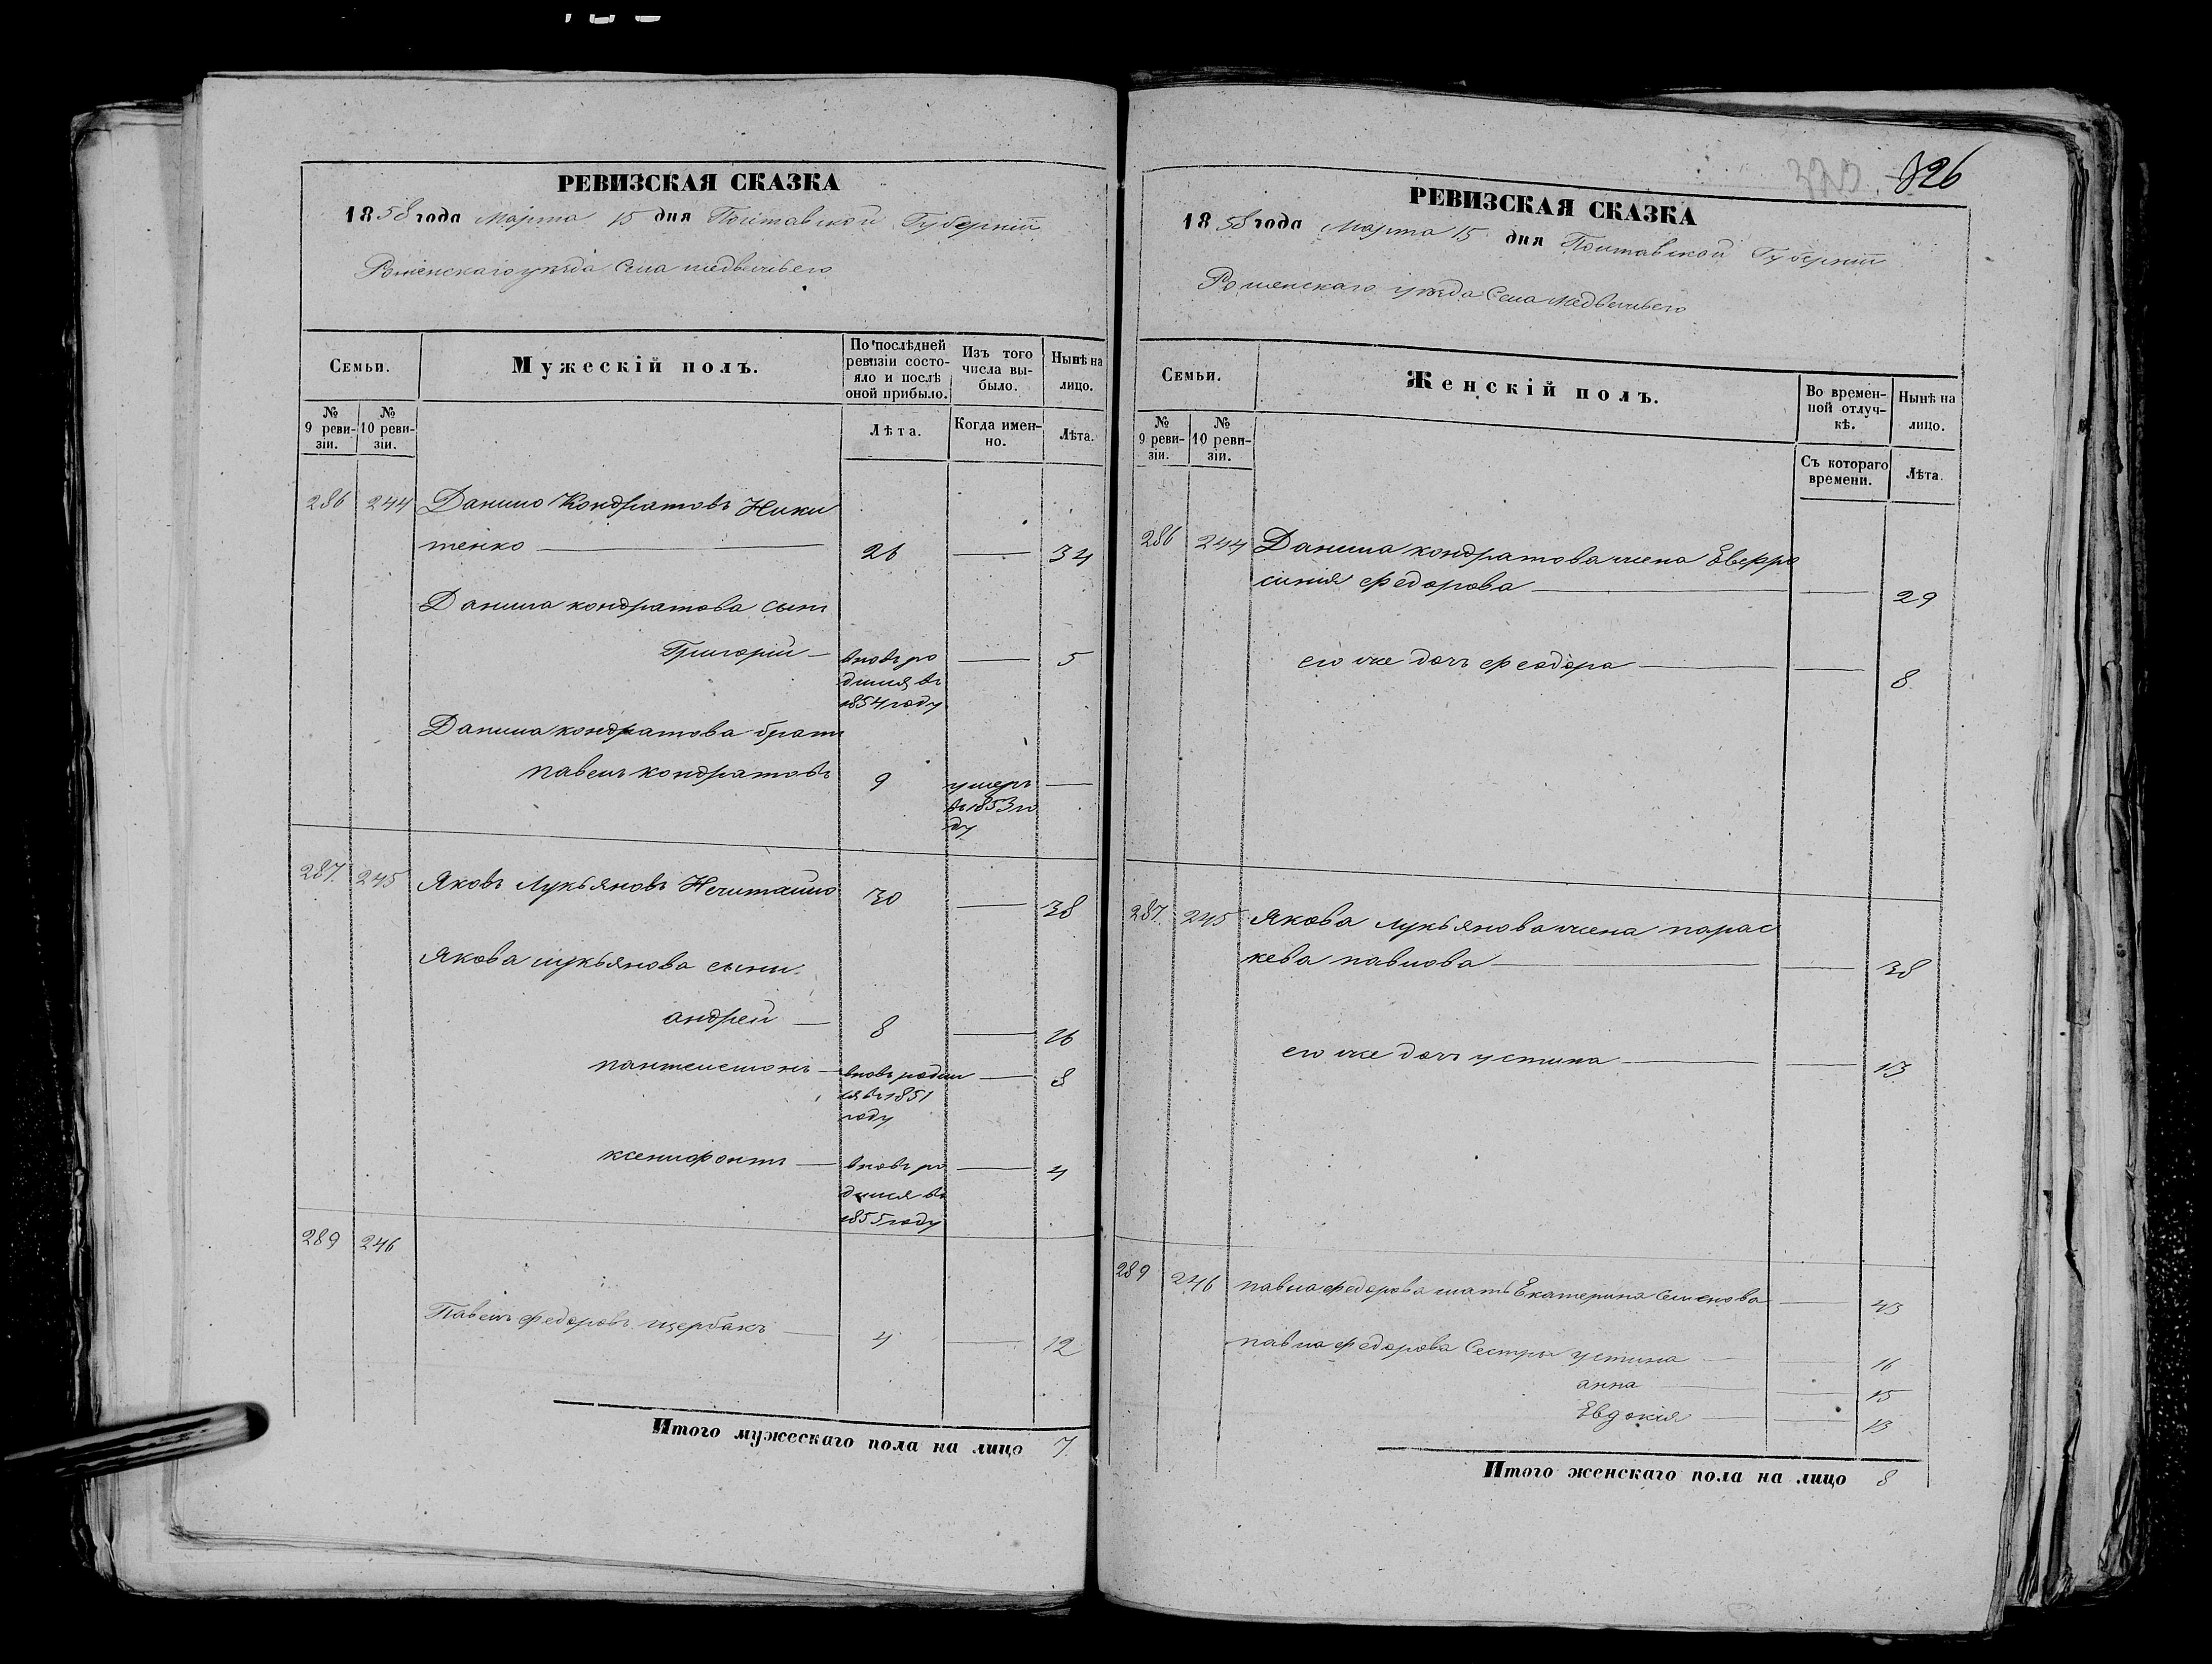 РЕВИЗСКАЯ СКАЗКА
1858 года Марта 15 дня Полтавской Губерніи
Роменскаго уезда Села Медвежьего
Семьи.
Мужескій полъ.
По послѣдней ревизіи состо-
яло и послѣ
оной прибыло.
Изъ того
числа вы-
было.
Нынѣ на
лицо.
№
9 реви-
зіи.
№
10 реви-
зіи.
Лѣта.
Когда имен-
но.
Лѣта.
286 244 Данило Кондратовъ Ники
тенко 26 — 34
Данила кондратова сынъ
Григорій — вновь ро — 5
дился въ
1854 году
Данила кондратова братъ
павелъ кондратовъ 9 умеръ —
въ 1853 го
ду
287 245 Яковъ Лукьяновъ Нечитайло 30 — 38
Якова лукьянова сыны
андрей — 8 — 16
пантелемонъ — вновь родил — 8
ся въ 1851
году
ксенифонтъ — вновь ро — 4
дился въ
1855 году
289 246
Павелъ федоровъ щербакъ — 4 — 12
Итого мужескаго пола на лицо 7.
326
РЕВИЗСКАЯ СКАЗКА
1858 года Марта 15 дня Полтавской Губерніи
Роменскаго уезда Села Медвежьего
Семьи.
Женскій полъ.
Во времен-
ной отлуч-
кѣ.
Нынѣ на
лицо.
№
9 реви-
зіи.
№
10 реви-
зіи.
Съ котораго
времени.
Лѣта.
286 244 Данила кондратова жена Евфро
синия федорова — — 29
его же дочь феодора — — 8
287. 245 Якова лукьянова жена парас
кева павлова — — 38
его же дочь устина — — 13
289 246 павла федорова мать Екатерина Семенова — 43
павла федорова Сестры устина — — 16
анна — — 15
Евдокия — — 13
Итого женскаго пола на лицо 8